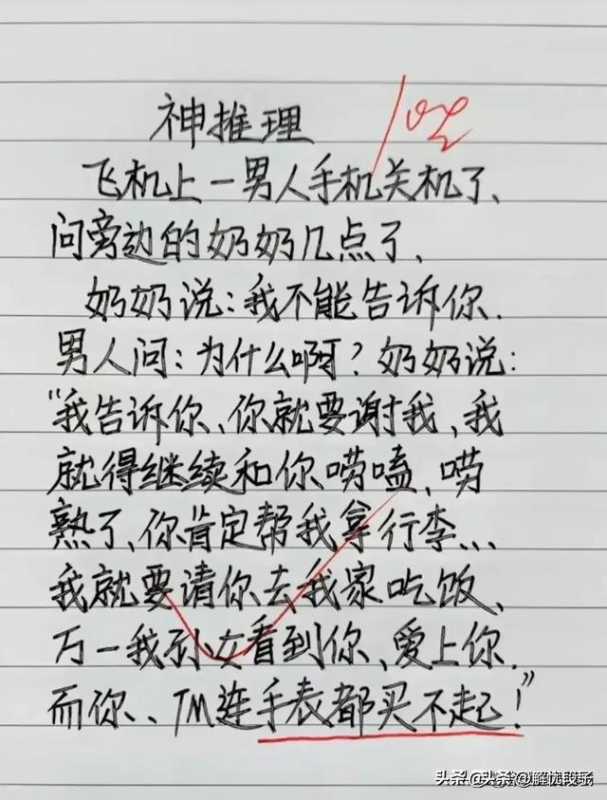 神推理
飞机上一男人手机关机了、
问旁边的奶奶几点了、
奶奶说：我不能告诉你.
男人问：为什么啊？奶奶说：
“我告诉你、你就要谢我、我
就得继续和你唠嗑、唠
熟了、你肯定帮我拿行李...
我就要请你去我家吃饭、
万一我孙女看到你、爱上你.
而你、、TM连手表都买不起！”
头条@解忧段子